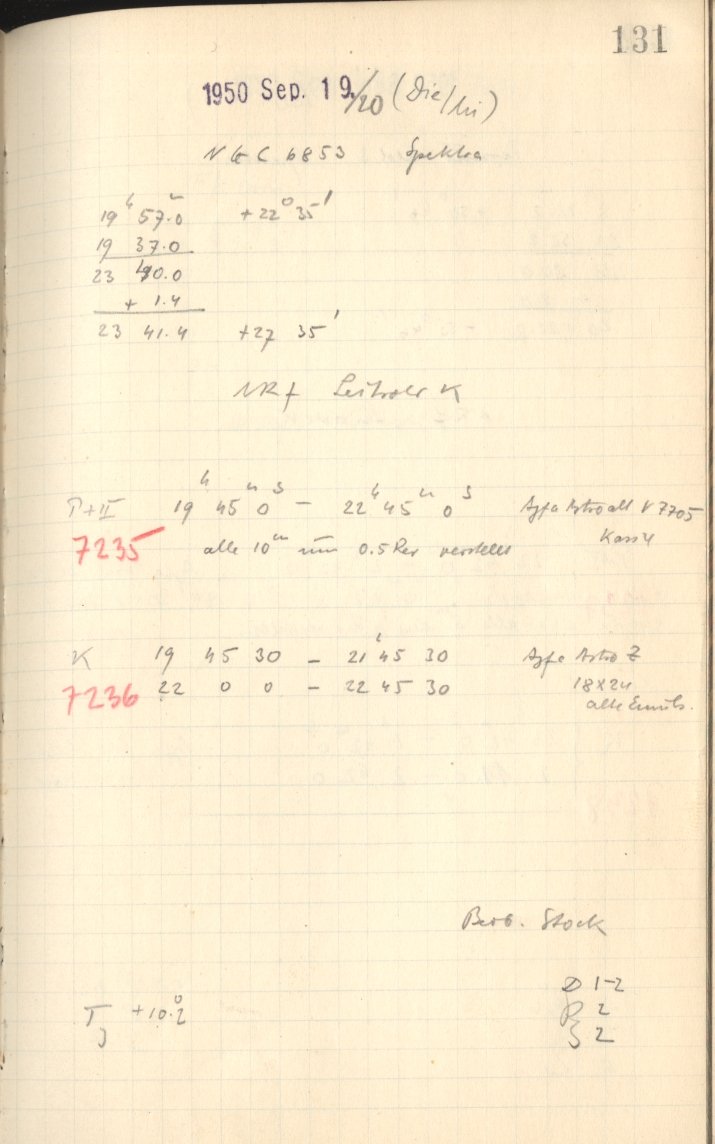 131
1950 Sep. 19./20 (Die/Mi)
NGC 6853 Spektra
19ʰ 57.ᵐ0 +22° 35'
19 37.0
23 40.0
+ 1.4
23 41.4 +27 35'
Leitrohr K
P+II 19ʰ 45ᵐ 0ˢ – 22ʰ 45ᵐ 0ˢ Agfa Astro
7235 alle 10ᵐ um 0.5 Rev verstellt
K 19 45 30 – 21 45 30 Agfa Astro Z
7236 22 0 0 – 22 45 30 18x24
alte Emuls.
Beob. Stock
D 1-2
T +10.°2 2
2